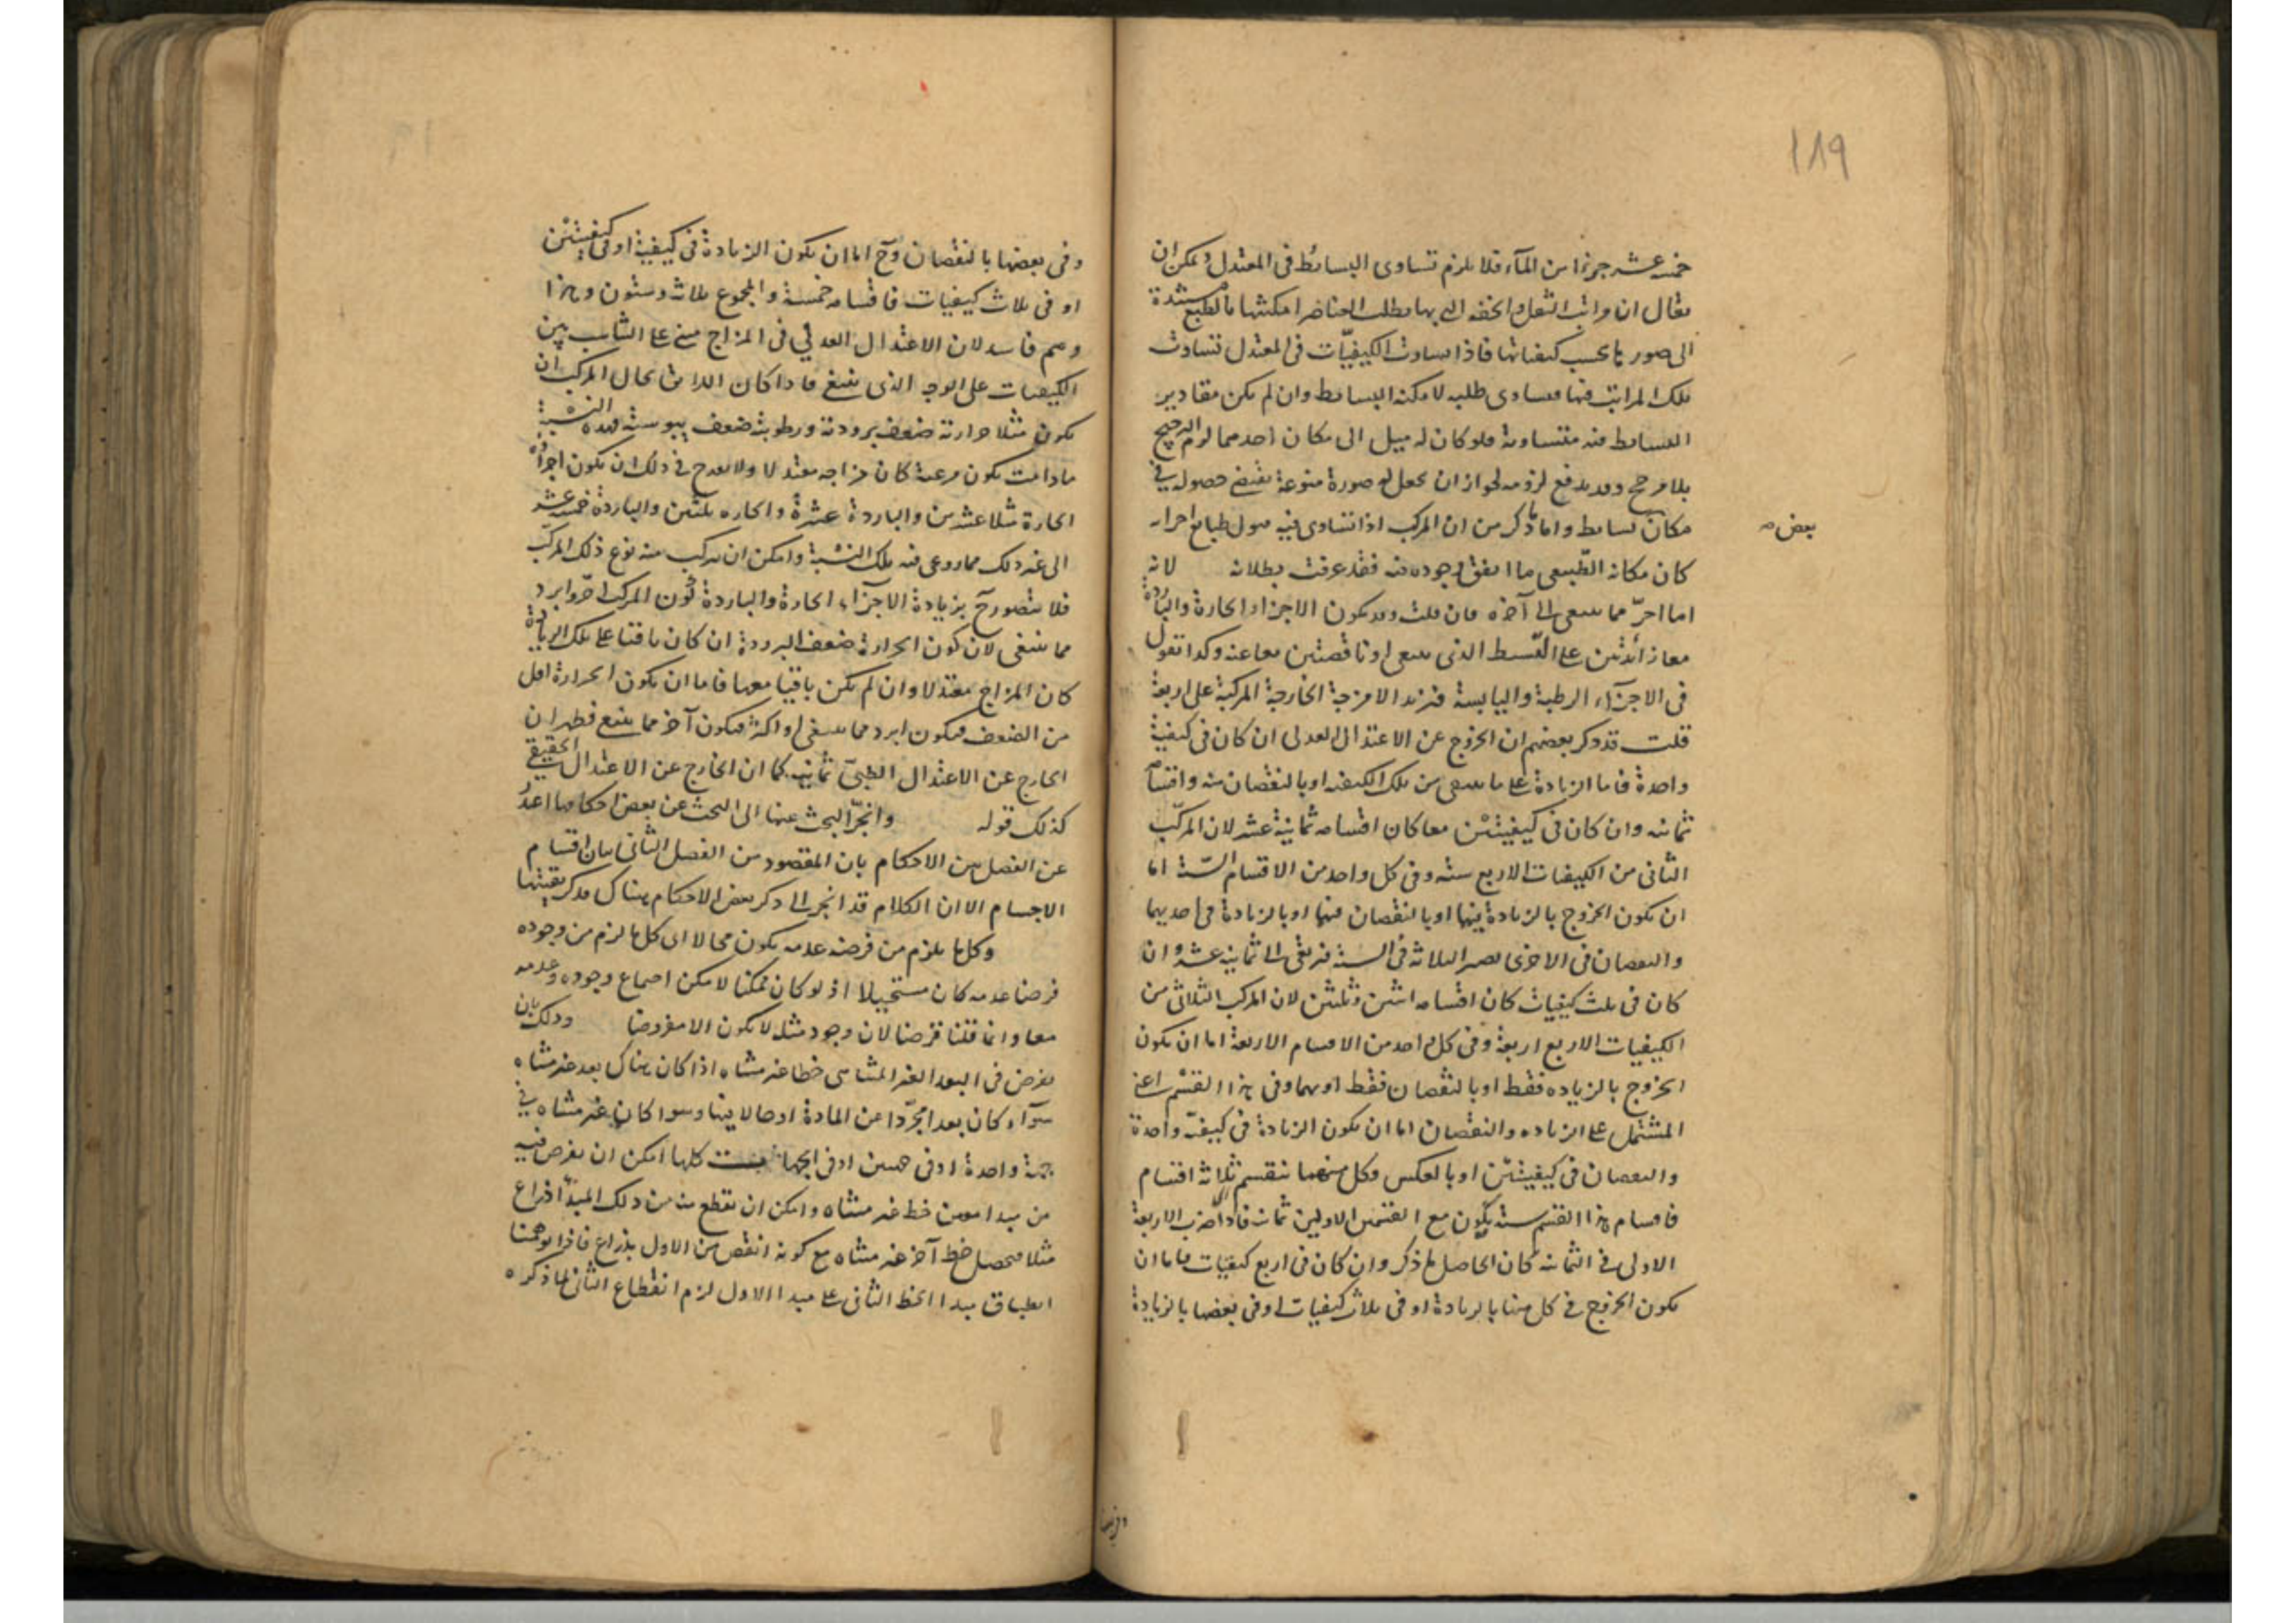 ١٨٩
خمسة عشر جزءا من الماء فلا يلزم تساوى البسائط فى المعتدل ويمكن ان
يقال ان مراتب الثقل والخفة التى بها يطلب العناصر امكنتها بالطبع مستندة
الى صورها بحسب كيفياتها فاذا تساوت الكيفيّات فى المعتدل تساوت
تلك المراتب فيها فيساوى طلبه لامكنة البسائط وان لم يكن مقادير
البسائط فيه متساوية فلو كان له ميل الى مكان احدهما لزم الترجيح
بلا مرجح وقد يدفع لزومه لجواز ان يحصل له صورة منوعة تقتضى حصوله فى
مكان بسائط واما ما ذكر من ان المركب اذا تساوى فيه ميول طبايع اجزائه
بعض صه
كان مكانه الطّبيعى ما اتفق وجوده فيه فقد عرفت بطلانه لانه
اما احرّ مما ينبغى الى آخره فان قلت وقد يكون الاجزاء الحارة والباردة
معا زائدتين على القسط الذى ينبغى او ناقصتين معا عنه وكذا نقول
فى الاجزآء الرطبة واليابسة فتزيد الامزجة الخارجة المركبة على اربعة
قلت قد ذكر بعضهم ان الخروج عن الاعتدال العدلى ان كان فى كيفية
واحدة فاما الزيادة على ما ينبغى من تلك الكيفية او بالنقصان منه واقسامه
ثمانية وان كان فى كيفيتين معا كان اقسامه ثمانية عشر لان المركّب
الثانى من الكيفيات الاربع ستة وفى كل واحد من الاقسام الستّة اما
ان يكون الخروج بالزيادة فيها او بالنقصان فيها او بالزيادة فى احديهما
والنقصان فى الاخرى بضرب الثلاثة فى الستة فترتقى الى ثمانية عشر وان
كان فى ثلث كيفيات كان اقسامه اثنين وثلثين لان المركب الثلاثى من
الكيفيات الاربع اربعة وفى كل واحد من الاقسام الاربعة اما ان يكون
الخروج بالزياده فقط او بالنقصان فقط او بهما وفى هذا القسم اعنى
المشتمل على الزياده والنقصان اما ان يكون الزيادة فى كيفيّة واحدة
والنقصان فى كيفيتّين او بالعكس وكل منهما ينقسم ثلاثة اقسام
فاقسام هذا القسم ستة يكون مع القسمين الاولين ثمانية فاذا ضرب الاربعة
الاولى فى الثمانية كان الحاصل ما ذكر وان كان فى اربع كيفيات فاما ان
يكون الخروج فى كل منها بالزيادة او فى ثلاث كيفيات او فى بعضها بالزيادة
وفى بعضها
وفى بعضها بالنقصان وح اما ان يكون الزيادة فى كيفية او فى كيفيتين
او فى ثلاث كيفيات فاقسامه خمسة والمجموع ثلاثة وستون وهذا
وهم فاسد لان الاعتدال العدلى فى المزاج مبنى على التناسب بين
الكيفيات على الوجه الذى ينبغى فاذا كان اللائق بحال المركب ان
يكون مثلا حرارته ضعف برودته ورطوبته ضعف يبوسته فهذه النسبة
ما دامت يكون مرعية كان مزاجه معتدلا ولا يقدح فى ذلك ان يكون اجزاؤه
الحارة مثلا عشرين والباردة عشرة والحاره ثلثين والباردة خمسة عشر
الى غير ذلك مما روعى فيه تلك النسبة وامكن ان يتركب منه نوع ذلك المركّب
فلا يتصور ح بزيادة الاجزاء الحارة والباردة كون المركب احرّ وابرد
مما ينبغى لان كون الحرارة ضعف البرودة ان كان باقيا على تلك الزيادة
كان المزاج معتدلا وان لم يكن باقيا معها فاما ان يكون الحرارة اقل
من الضعف فيكون ابرد مما ينبغى او اكثر فيكون احر مما ينبغى فظهر ان
الخارج عن الاعتدال الطبىّ ثمانية كما ان الخارج عن الاعتدال الحقيقى
كذلك قوله وانجرّ البحث عنها الى البحث عن بعض احكامها اعتذر
عن الفصل بين الاحكام بان المقصود من الفصل الثانى بيان اقسام
الاجسام الا ان الكلام قد انجر الى ذكر بعض الاحكام هناك فذكر بقيتها
وكل ما يلزم من فرض عدمه يكون محالا اى كل ما لزم من وجوده
فرضا عدمه كان مستحيلا اذ لو كان ممكنا لامكن اجتماع وجوده وعدمه
معا وانما قلنا فرضا لان وجود مثله لا يكون الا مفروضا وذلك بان
نفرض فى البعد الغير المتناهى خطا غير متناه اذا كان هناك بعد غير متناه
سوآء كان بعدا مجرّدا عن المادة او حالا فيها وسوا كان غير متناه فى
جهة واحدة او فى جهتين او فى الجهات كلها امكن ان نفرض فيه
من مبدا معين خط غير متناه وامكن ان نقطع منه من ذلك المبدأ ذراع
مثلا فيحصل خط آخر غير متناه مع كونه انقص من الاول بذراع فاذا توهمنا
انطباق مبدا الخط الثانى على مبدا الاول لزم انقطاع الثانى لما ذكره